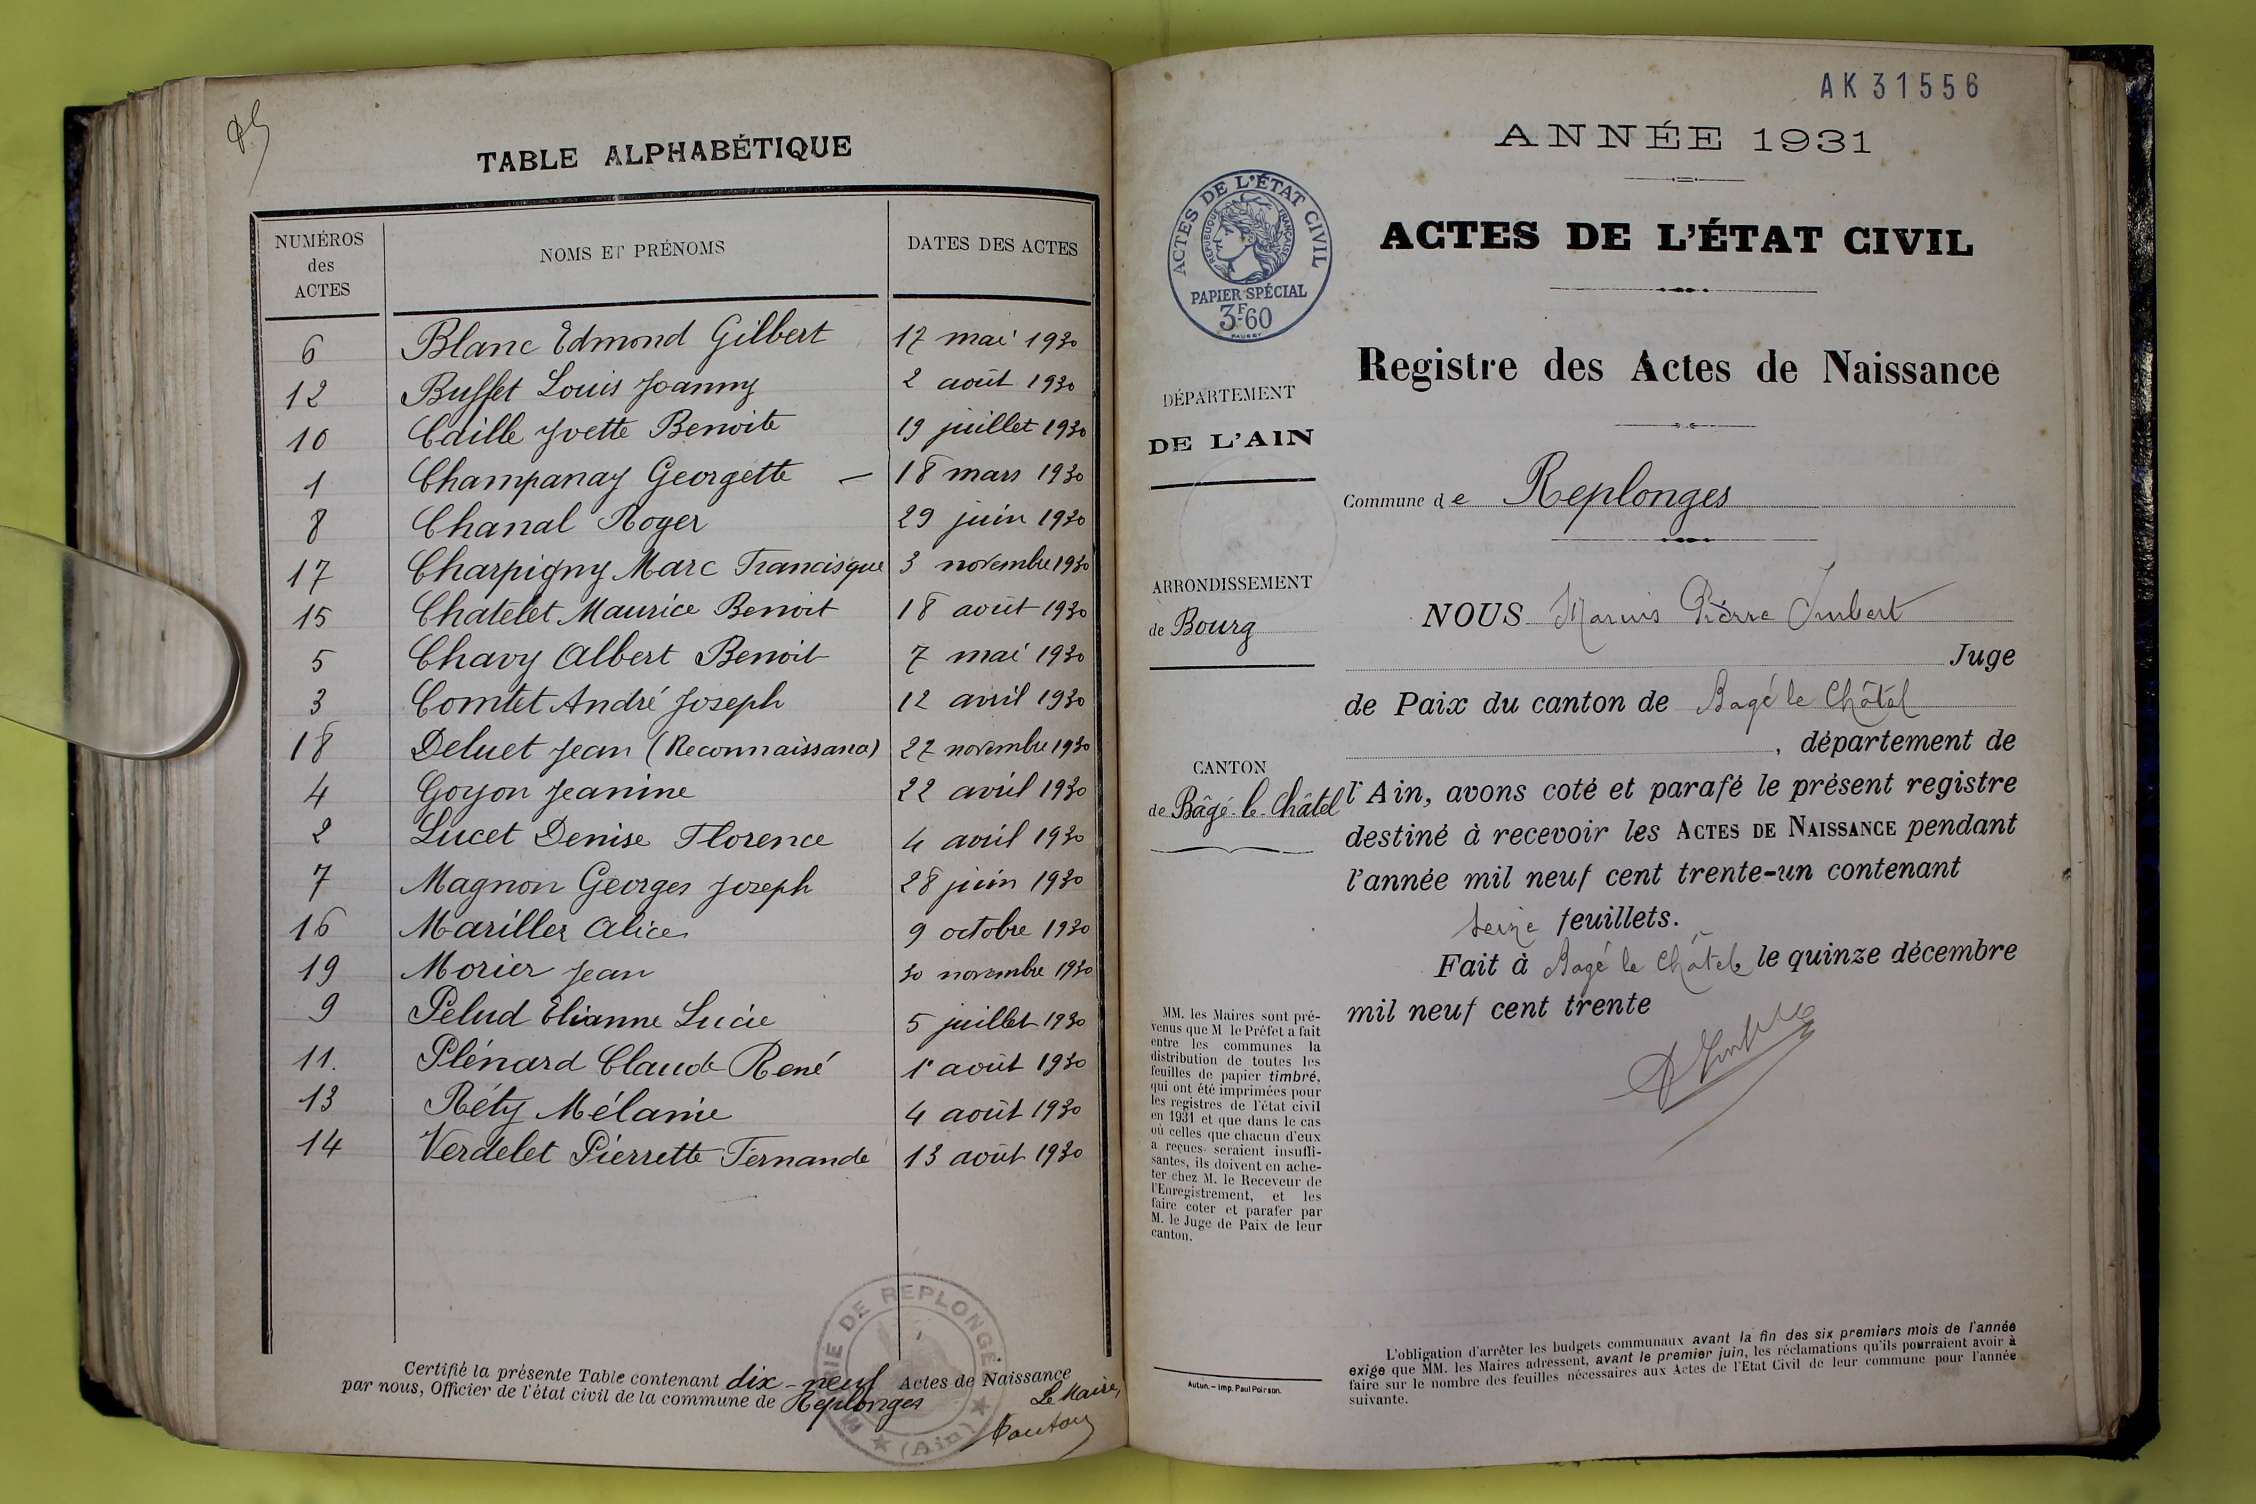 TABLE ALPHABÉTIQUE
NUMÉROS des ACTES NOMS ET PRÉNOMS DATES DES ACTES
6 Blanc Edmond Gilbert 17 mai 1930
12 Buffet Louis Joanny 2 août 1930
10 Caille Yvette Benoite 19 juillet 1930
1 Champanay Georgette — 18 mars 1930
8 Chanal Roger 29 juin 1930
17 Charpigny Marc Francisque 3 novembre 1930
15 Chatelet Maurice Benoit 18 août 1930
5 Chavy Albert Benoit 7 mai 1930
3 Comtet André Joseph 12 avril 1930
18 Deluet Jean (Reconnaissance) 27 novembre 1930
4 Goyon Jeanine 22 avril 1930
2 Lucet Denise Florence 4 avril 1930
7 Magnon Georges Joseph 28 juin 1930
16 Mariller Alice 9 octobre 1930
19 Morier Jean 30 novembre 1930
9 Pelud Elianne Lucie 5 juillet 1930
11. Plénard Claude René 1er août 1930
13 Réty Mélanie 4 août 1930
14 Verdelet Pierrette Fernande 13 août 1930
Certifié la présente Table contenant dix-neuf Actes de Naissance
par nous, Officier de l'état civil de la commune de Replonges
Le Maire,
MAIRIE DE REPLONGES
(Ain)
AK 31556
ANNÉE 1931
ACTES DE L'ÉTAT CIVIL
RÉPUBLIQUE FRANÇAISE
PAPIER SPÉCIAL
3F60
ACTES DE L'ÉTAT CIVIL
Registre des Actes de Naissance
DÉPARTEMENT
DE L'AIN
Commune de Replonges
ARRONDISSEMENT
de Bourg
CANTON
de Bâgé-le-Châtel
NOUS Marius Pierre Imbert
Juge
de Paix du canton de Bagé le Châtel
, département de
l'Ain, avons coté et parafé le présent registre
destiné à recevoir les ACTES DE NAISSANCE pendant
l'année mil neuf cent trente-un contenant
seize feuillets.
Fait à Bagé le Châtel le quinze décembre
mil neuf cent trente
MM. les Maires sont pré-
venus que M le Préfet a fait
entre les communes la
distribution de toutes les
feuilles de papier timbré,
qui ont été imprimées pour
les registres de l'état civil
en 1931 et que dans le cas
où celles que chacun d'eux
a reçues seraient insuffi-
santes, ils doivent en ache-
ter chez M. le Receveur de
l'Enregistrement, et les
faire coter et parafer par
M. le Juge de Paix de leur
canton.
Autun. – Imp. Paul Poirson.
L'obligation d'arrêter les budgets communaux avant la fin des six premiers mois de l'année
exige que MM. les Maires adressent, avant le premier juin, les réclamations qu'ils pourraient avoir à
faire sur le nombre des feuilles nécessaires aux Actes de l'Etat Civil de leur commune pour l'année
suivante.